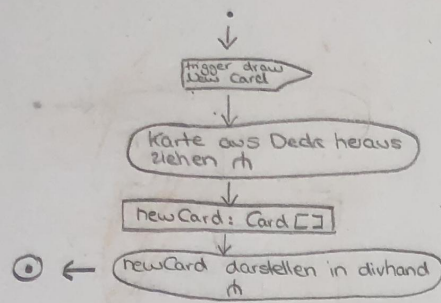 trigger draw
new Card
Karte aus Deck heraus
ziehen
newCard: Card []
newCard darstellen in divhand